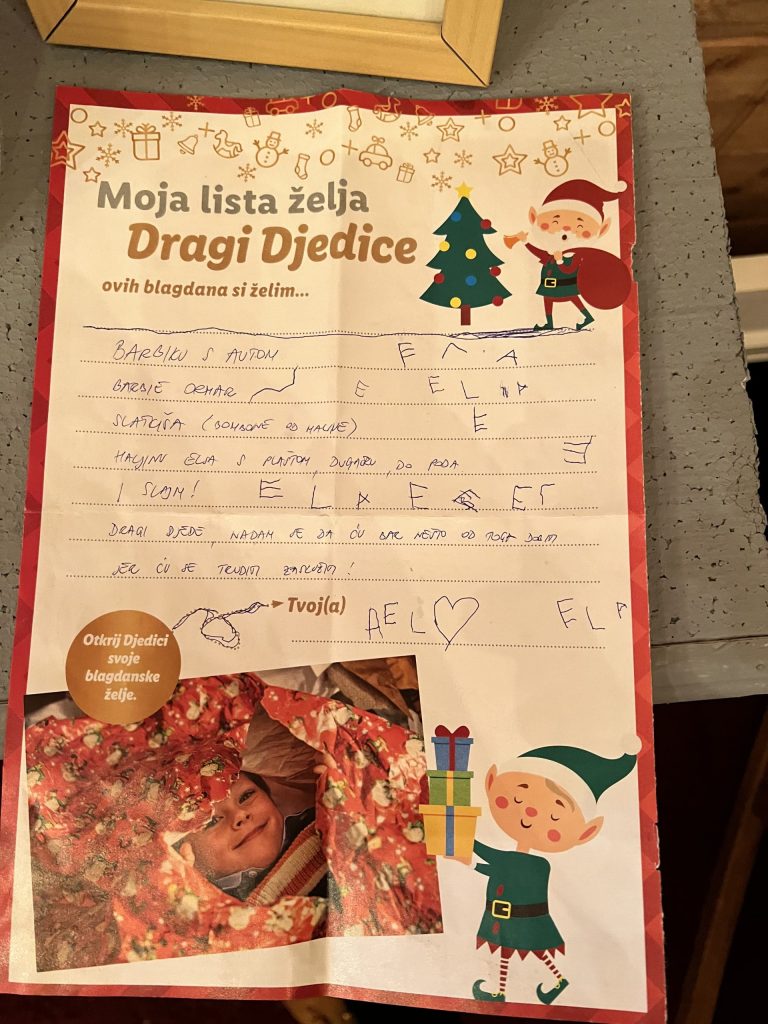 Moja lista želja
Dragi Djedice
ovih blagdana si želim...
BARBIKU S AUTOM E A
BARBIE ORMAR E E L A
SLATKIŠA (BOMBONE OD MALINE) E
HALJINU ELSA S PLAŠTOM, DUGAČKU, DO PODA E
I SLAJM! E L A E E
DRAGI DJEDE, NADAM SE DA ĆU BAR NEŠTO OD TOGA DOBITI
JER ĆU SE TRUDITI ZASLUŽITI!
Tvoj(a) A E L E L A
Otkrij Djedici
svoje
blagdanske
želje.